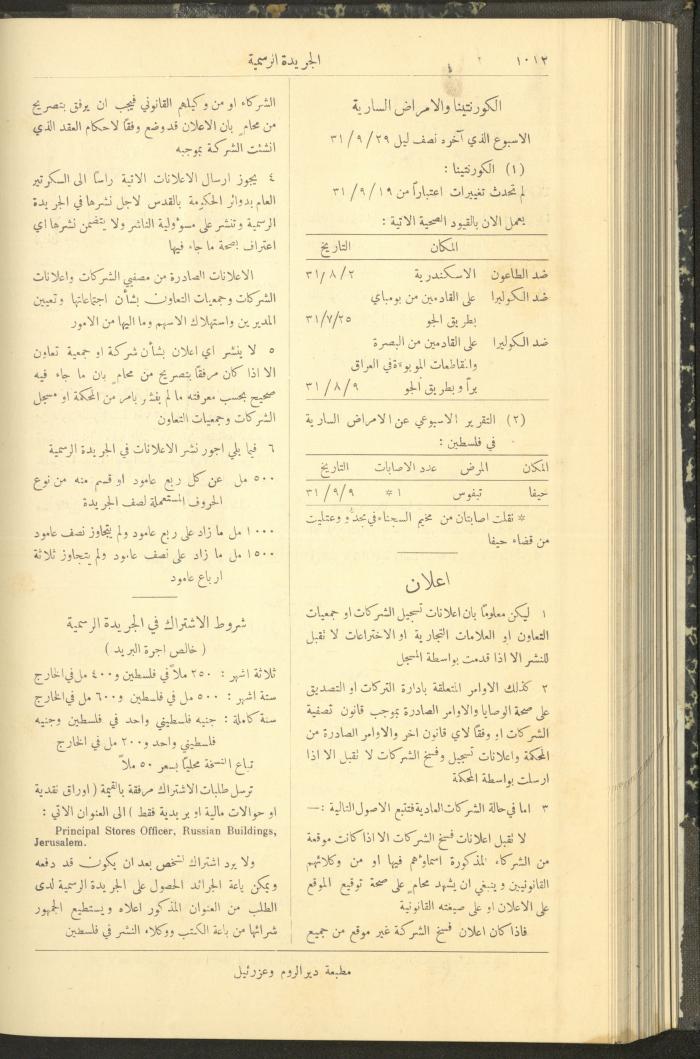 ١٠١٢
الجريدة الرسمية
الكورنتينا والامراض السارية
الاسبوع الذي آخره نصف ليل ٢٩ / ٩ / ٣١
(١) الكورنتينا :
لم تحدث تغييرات اعتباراً من ١٩ / ٩ / ٣١
يعمل الان بالقيود الصحية الاتية :
المكان التاريخ
ضد الطاعون الاسكندرية ٢ / ٨ / ٣١
ضد الكوليرا على القادمين من بومباي
بطريق الجو ٢٥ /٧/ ٣١
ضد الكوليرا على القادمين من البصرة
والمقاطعات الموبوءة في العراق
براً وبطريق الجو ٩ / ٨ / ٣١
(٢) التقرير الاسبوعي عن الامراض السارية
في فلسطين :
المكان المرض عدد الاصابات التاريخ
حيفا تيفوس ١* ٩ / ٩ / ٣١
* نقلت اصابتان من مخيم السجناء في نجد وعتليت
من قضاء حيفا
اعلان
١ ليكن معلوماً بان اعلانات تسجيل الشركات او جمعيات
التعاون او العلامات التجارية او الاختراعات لا تقبل
للنشر الا اذا قدمت بواسطة المسجل
٢ كذلك الاوامر المتعلقة بادارة التركات او التصديق
على صحة الوصايا والاوامر الصادرة بموجب قانون تصفية
الشركات او وفقاً لاي قانون اخر والاوامر الصادرة من
المحكمة واعلانات تسجيل وفسخ الشركات لا تقبل الا اذا
ارسلت بواسطة المحكمة
٣ اما في حالة الشركات العادية فتتبع الاصول التالية :—
لا تقبل اعلانات فسخ الشركات الا اذا كانت موقعة
من الشركاء المذكورة اسماؤهم فيها او من وكلائهم
القانونيين وينبغي ان يشهد محام على صحة توقيع الموقع
على الاعلان او على صيغته القانونية
فاذا كان اعلان فسخ الشركة غير موقع من جميع
الشركاء او من وكيلهم القانوني فيجب ان يرفق بتصريح
من محام بان الاعلان قد وضع وفقاً لاحكام العقد الذي
انشئت الشركة بموجبه
٤ يجوز ارسال الاعلانات الاتية راساً الى السكرتير
العام بدوائر الحكومة بالقدس لاجل نشرها في الجريدة
الرسمية وتنشر على مسؤولية الناشر ولا يتضمن نشرها اي
اعتراف بصحة ما جاء فيها
الاعلانات الصادرة من مصفيي الشركات واعلانات
الشركات وجمعيات التعاون بشأن اجتماعاتها وتعيين
المديرين واستهلاك الاسهم وما اليها من الامور
٥ لا ينشر اي اعلان بشأن شركة او جمعية تعاون
الا اذا كان مرفقاً بتصريح من محام بان ما جاء فيه
صحيح بحسب معرفته ما لم ينشر بامر من المحكمة او مسجل
الشركات وجمعيات التعاون
٦ فيما يلي اجور نشر الاعلانات في الجريدة الرسمية
٥٠٠ مل عن كل ربع عامود او قسم منه من نوع
الحروف المستعملة لصف الجريدة
١٠٠٠ مل ما زاد على ربع عامود ولم يتجاوز نصف عامود
١٥٠٠ مل ما زاد على نصف عامود ولم يتجاوز ثلاثة
ارباع عامود
شروط الاشتراك في الجريدة الرسمية
( خالص اجرة البريد )
ثلاثة اشهر : ٢٥٠ ملاً في فلسطين و٤٠٠ مل في الخارج
ستة اشهر : ٥٠٠ مل في فلسطين و٦٠٠ مل في الخارج
سنة كاملة : جنيه فلسطيني واحد في فلسطين وجنيه
فلسطيني واحد و٢٠٠ مل في الخارج
تباع النسخة محلياً بسعر ٥٠ ملاً
ترسل طلبات الاشتراك مرفقة بالقيمة ( اوراق نقدية
او حوالات مالية او بريدية فقط ) الى العنوان الاتي :
Principal Stores Officer, Russian Buildings,
Jerusalem.
ولا يرد اشتراك لشخص بعد ان يكون قد دفعه
ويمكن باعة الجرائد الحصول على الجريدة الرسمية لدى
الطلب من العنوان المذكور اعلاه ويستطيع الجمهور
شرائها من باعة الكتب ووكلاء النشر في فلسطين
مطبعة دير الروم وعزرئيل